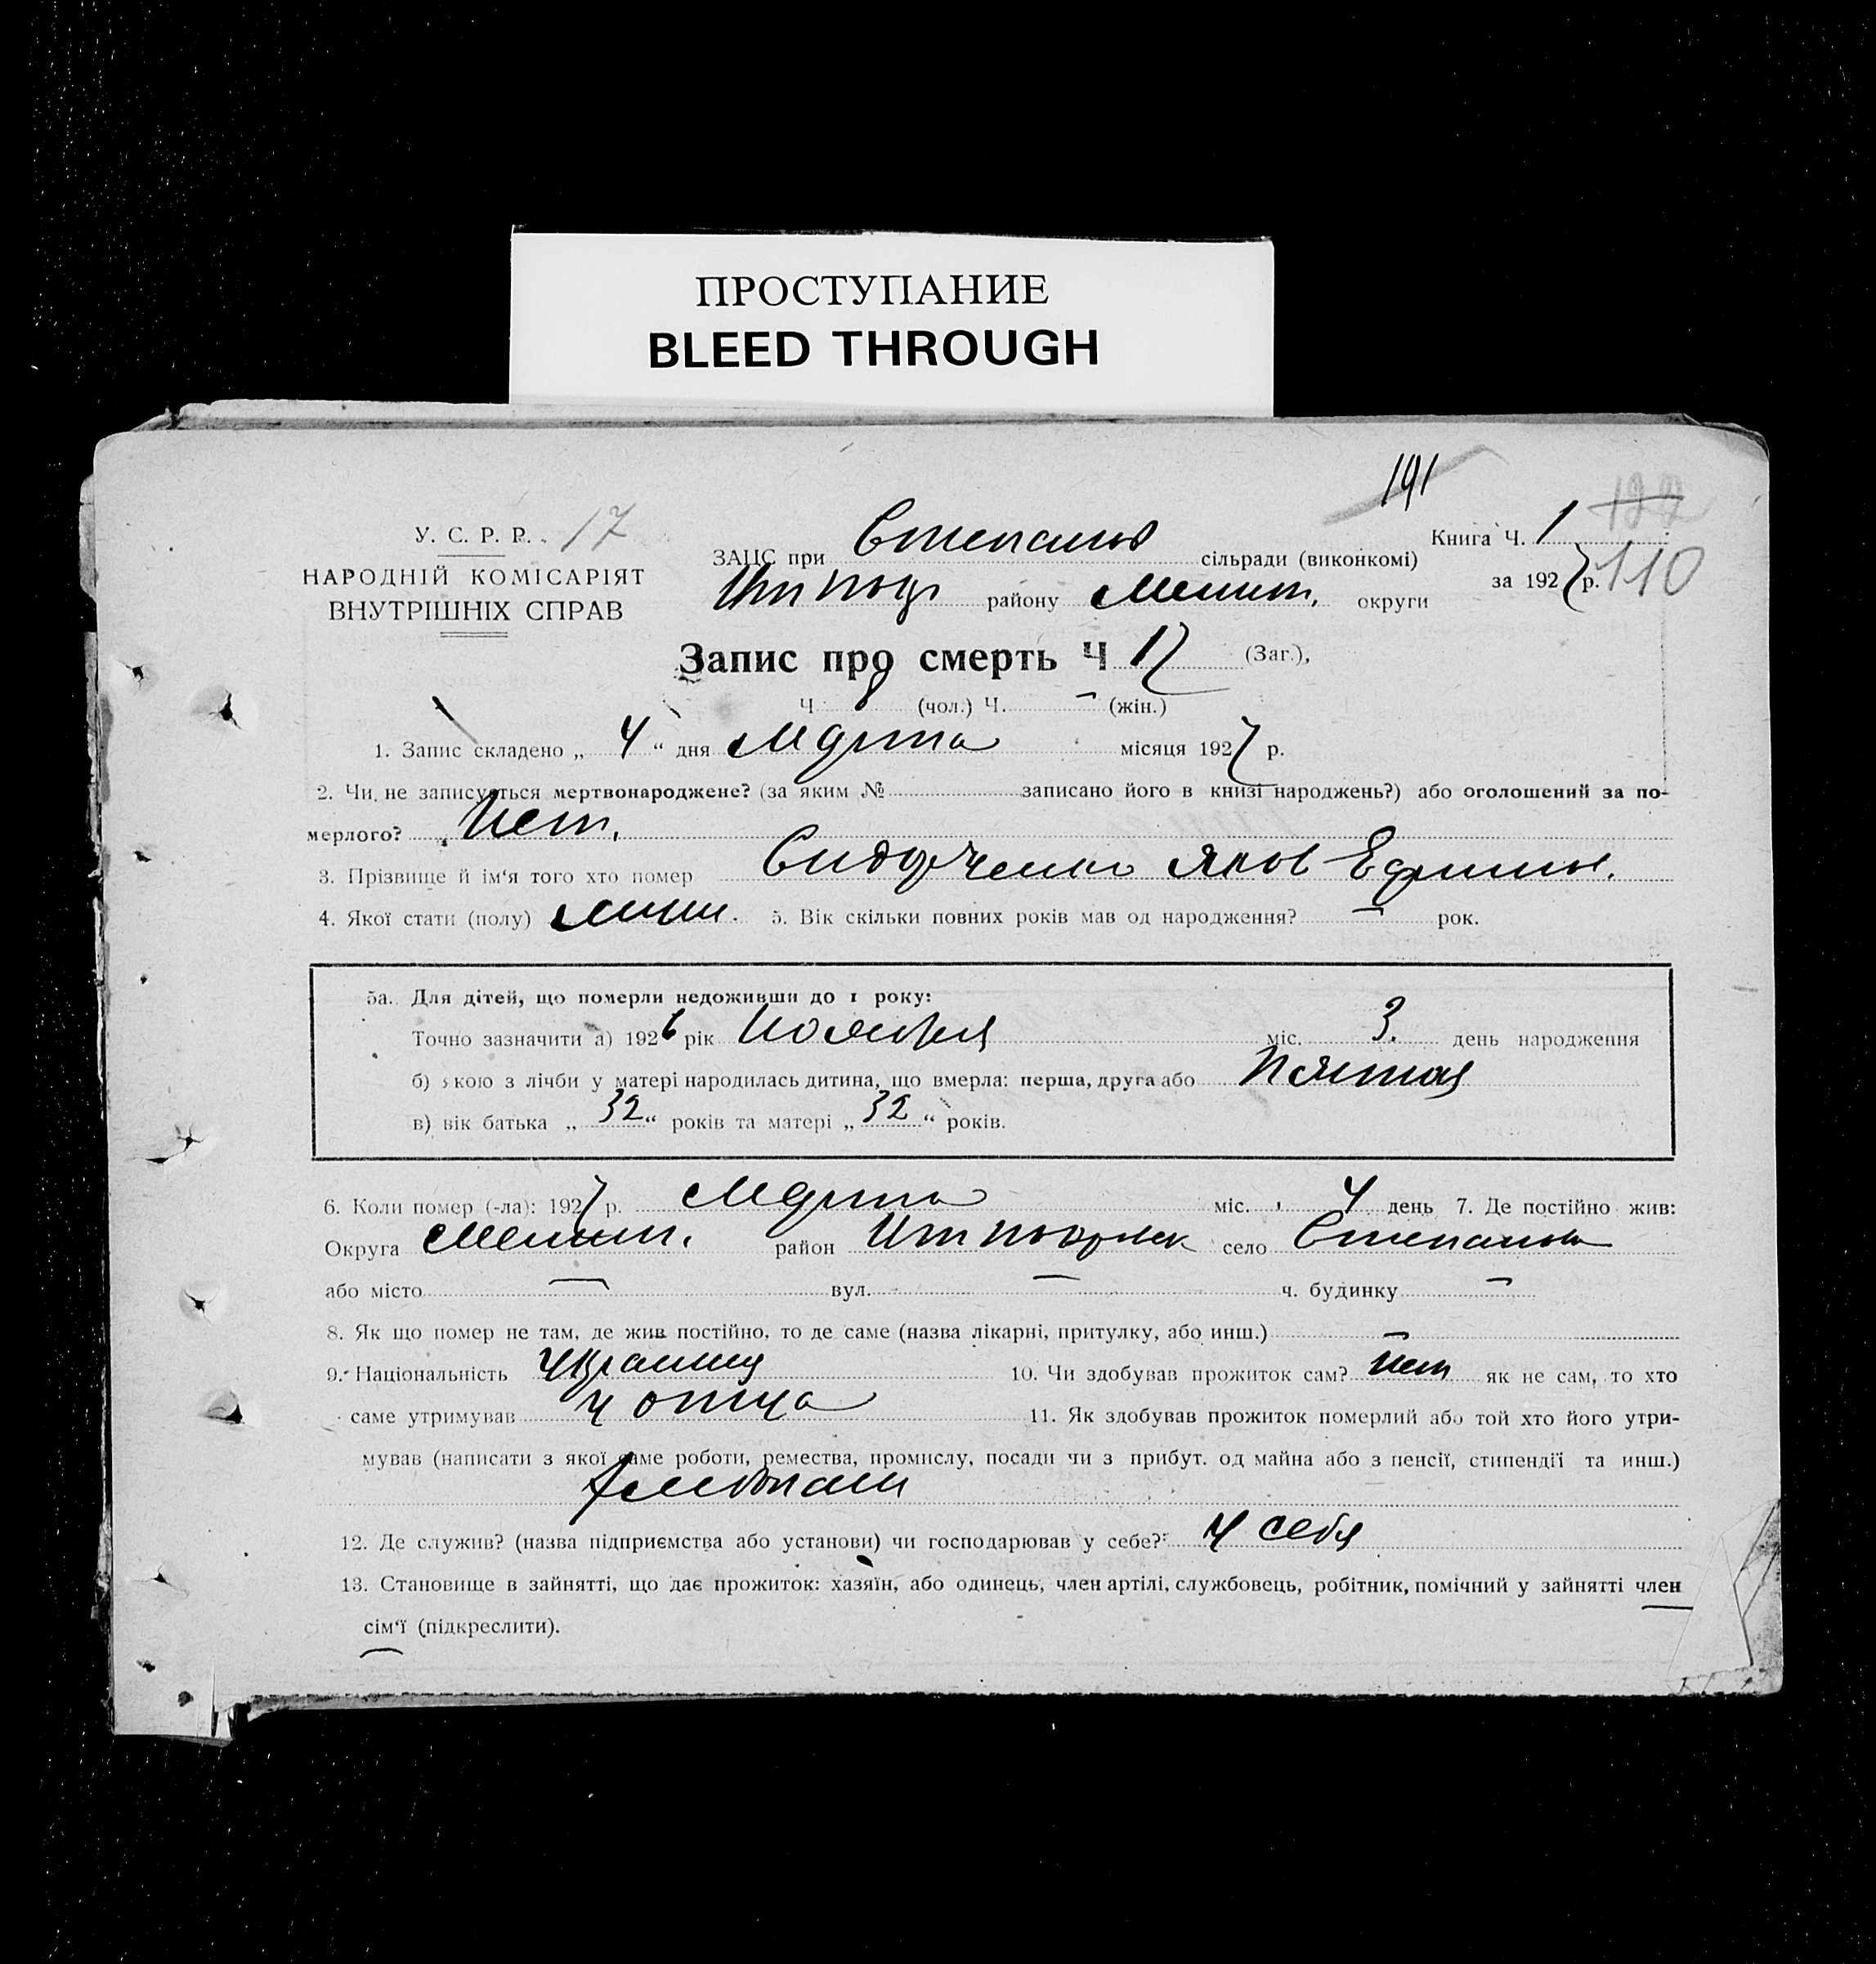 ПРОСТУПАНИЕ
BLEED THROUGH
191
У. С. Р. Р. 17
НАРОДНІЙ КОМІСАРІЯТ
ВНУТРІШНІХ СПРАВ
Книга Ч. 1
за 1927 р. 110
ЗАЦС при сільради (виконкомі)
району Мелит. округи
Запис про смерть Ч 17 (Заг.),
Ч 8 (чол.) Ч. – (жін.)
1. Запис складено „ 4 “ дня Марта місяця 1927 р.
2. Чи не записується мертвонароджене? (за яким № записано його в книзі народжень?) або оголошений за по-
мерлого? Нет.
3. Прізвище й ім‘я того хто помер Сидорченко Яков Ефимов.
4. Якої стати (полу) 5. Вік скільки повних років мав од народження? — рок.
5а. Для дітей, що померли недоживши до 1 року:
Точно зазначити а) 1926 рік Ноября міс. 3. день народження
б) якою з лічби у матері народилась дитина, що вмерла: перша, друга або Пятая
в) вік батька „ 32 “ років та матері „ 32 “ років.
6. Коли помер (-ла): 1927 р. Марта міс. 4 день 7. Де постійно жив:
Округа Мелит. район село
або місто — вул. — ч. будинку —
8. Як що помер не там, де жив постійно, то де саме (назва лікарні, притулку, або инш.) —
9. Національність 10. Чи здобував прожиток сам? нет як не сам, то хто
саме утримував у отца 11. Як здобував прожиток померлий або той хто його утри-
мував (написати з якої саме роботи, ремества, промислу, посади чи з прибут. од майна або з пенсії, стипендії та инш.)
12. Де служив? (назва підприємства або установи) чи господарював у себе? у себя
13. Становище в зайнятті, що дає прожиток: хазяїн, або одинець, член артілі, службовець, робітник, помічний у зайнятті член
сім‘ї (підкреслити).